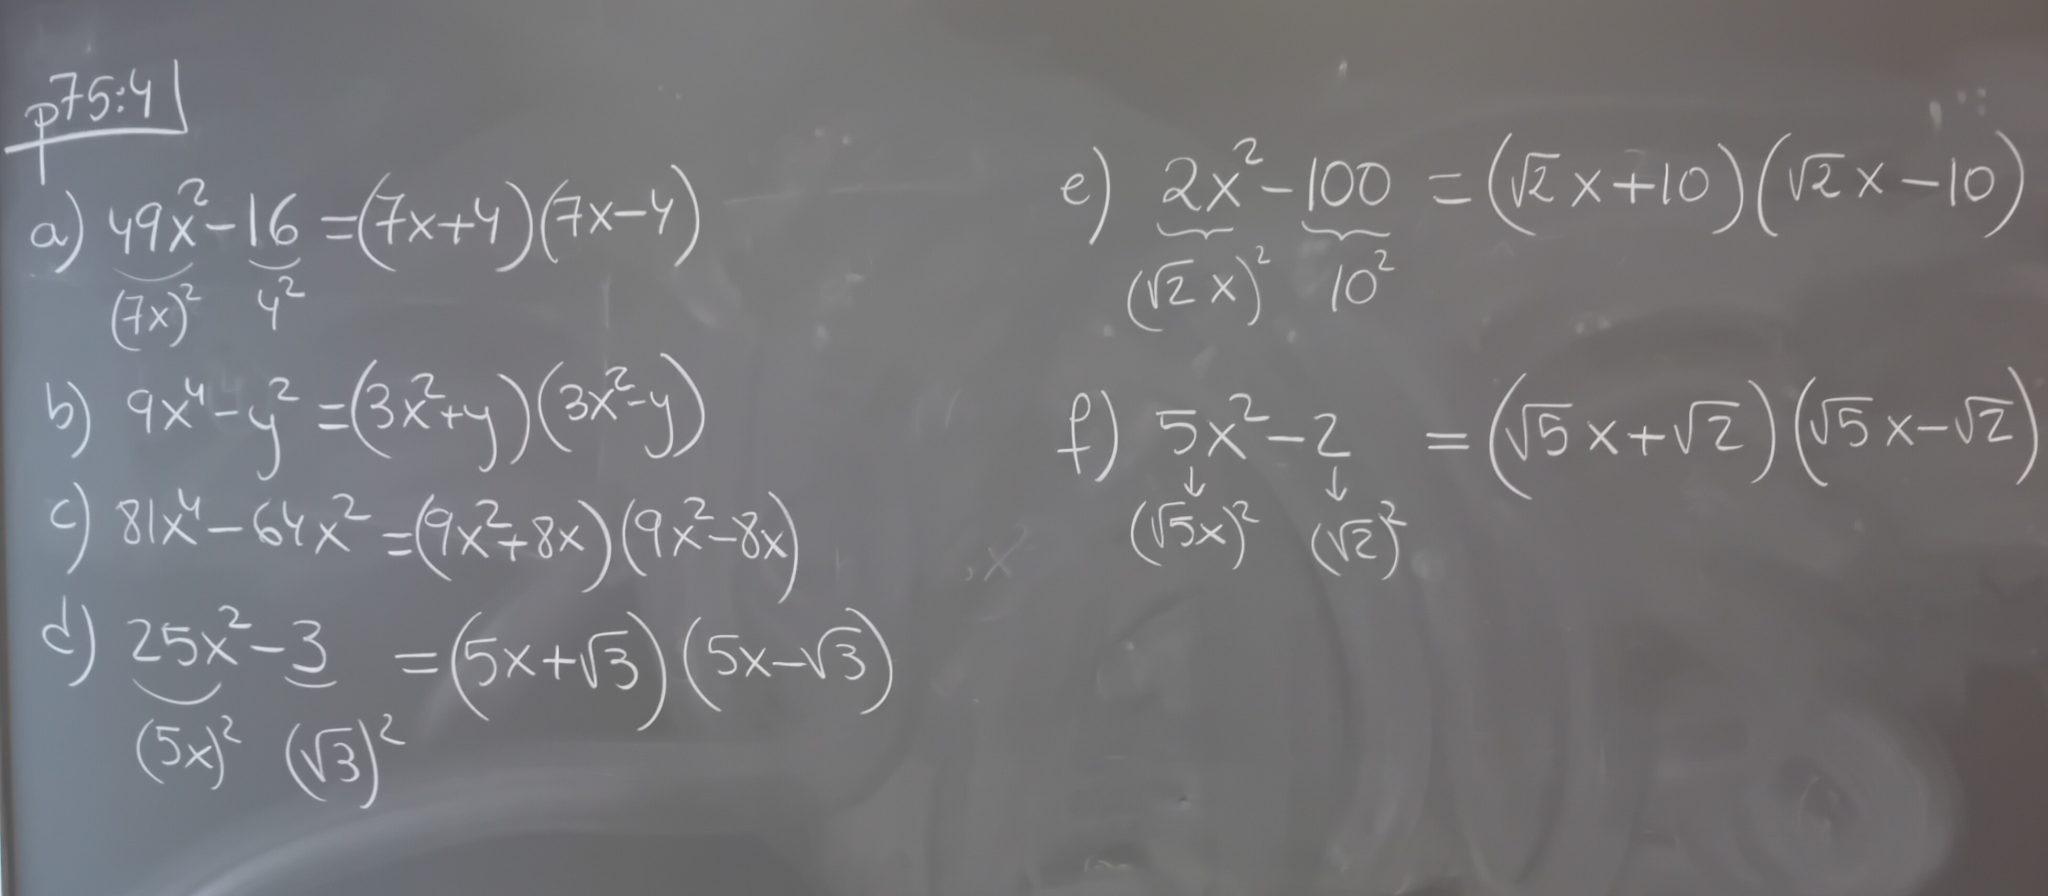 p75:4
a) 49x² - 16 = (7x+4)(7x-4)
(7x)² 4²
b) 9x⁴ - y² = (3x²+y)(3x²-y)
c) 81x⁴ - 64x² = (9x²+8x)(9x²-8x)
d) 25x² - 3 = (5x+√3)(5x-√3)
(5x)² (√3)²
e) 2x² - 100 = (√2x+10)(√2x-10)
(√2x)² 10²
f) 5x² - 2 = (√5x+√2)(√5x-√2)
↓ ↓
(√5x)² (√2)²